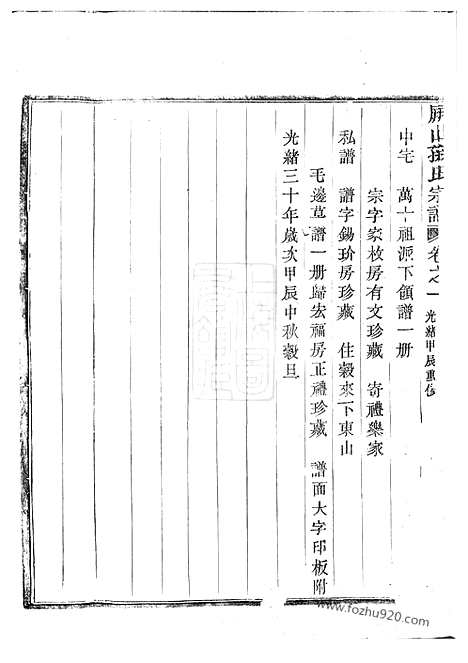 屏山孫氏宗譜 卷六之一 光緒甲辰重修
中宅 萬十祖派下領譜一册
宗字家枚房有文珍藏 寄禮樂家
私譜 譜字錫玠房珍藏 住穀來下東山
毛邊草譜一册歸宏福房正禮珍藏 譜面大字印板附
光緒三十年歲次甲辰中秋穀旦
www.fozhu920.com